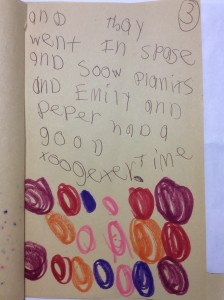 3
and thay
went In spase
and soow planits
and Emily and
peper had a
good time
toogexer.